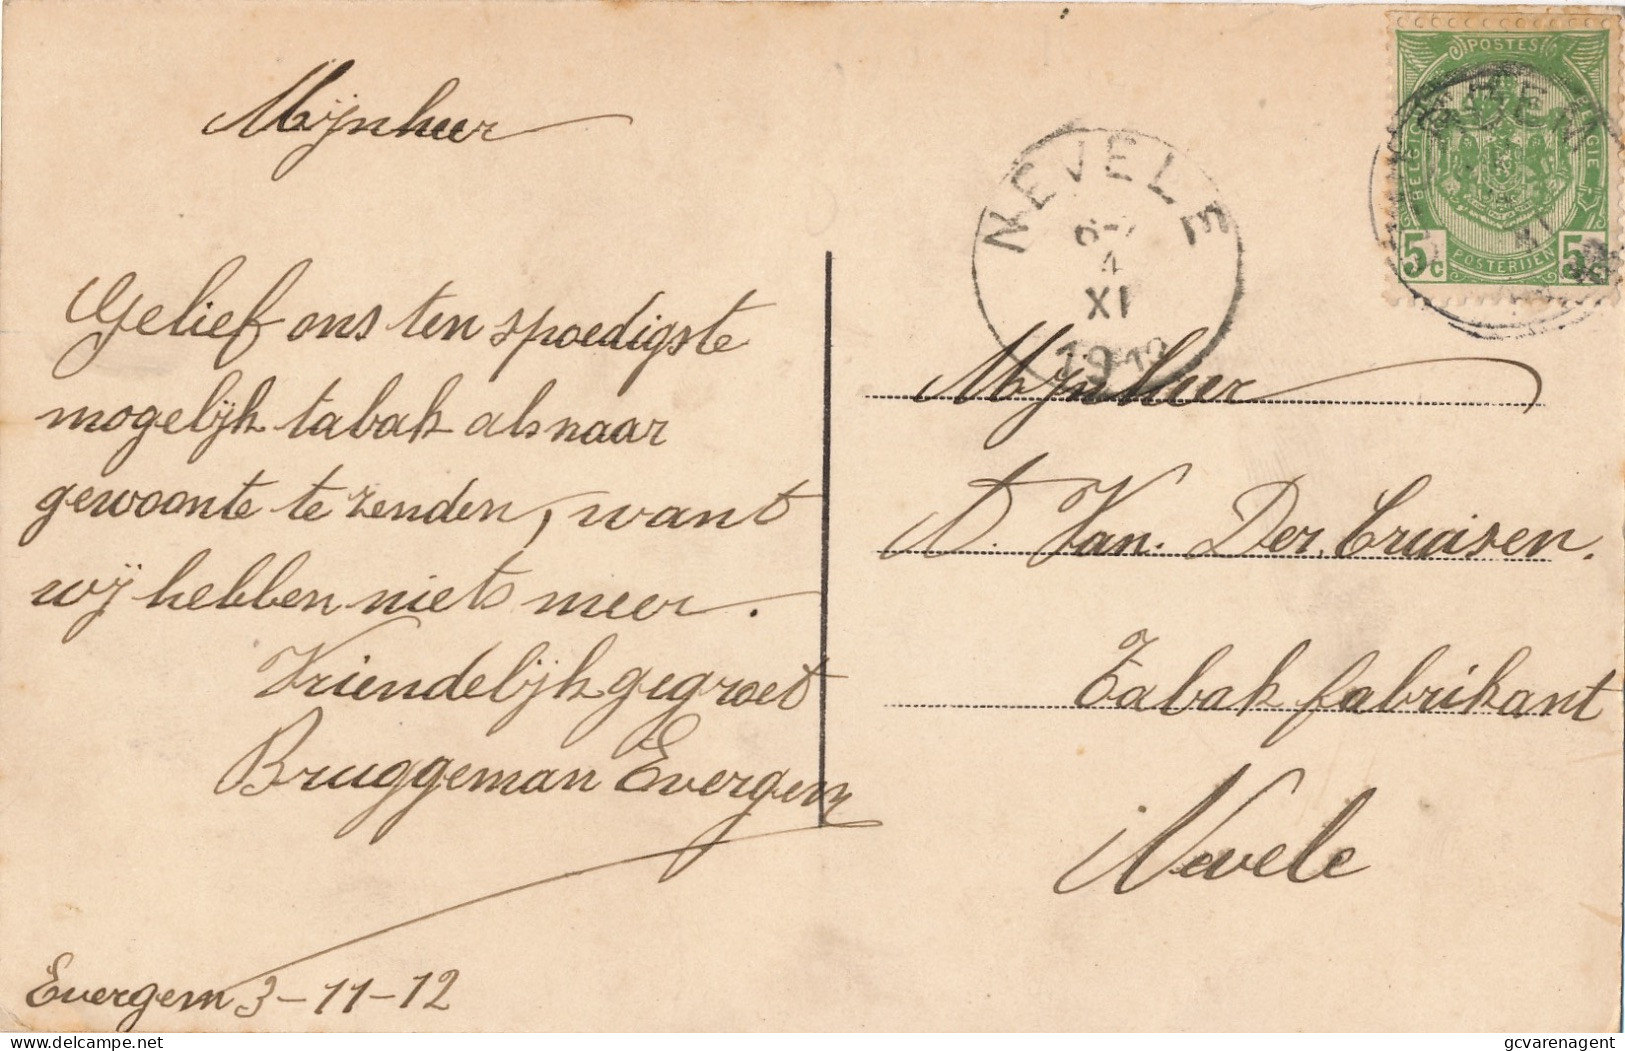 Mijnheer
Gelief ons ten spoedigste
mogelijk tabak als naar
gewoonte te zenden, want
wij hebben niets meer.
Vriendelijk gegroet
Bruggeman Evergem
Evergem 3-11-12
POSTES
BELGIQUE
BELGIE
5c
5c
POSTERIJEN
NEVELE
6-7
4
XI
1912
Mijnheer
A. Van. Der. Cruisen.
Tabak fabrikant
Nevele
delcampe.net
gcvarenagent